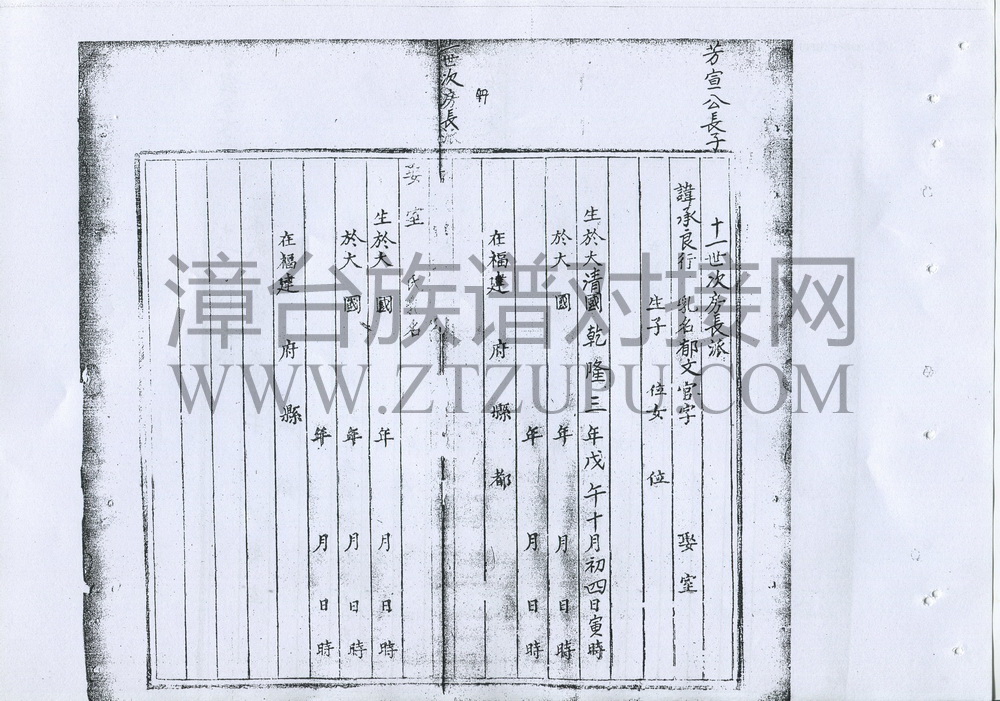 芳宣公長子
十一世次房長派
諱承良行 乳名郁文官字 娶室
生子 位女 位
生於大清國乾隆三年戊午十月初四日寅時
於大 國 年 月 日 時
年 月 日 時
在福建 府 縣 都
世次房長派
娶室 氏 名
生於大 國 年 月 日 時
於大 國 年 月 日 時
年 月 日 時
在福建 府 縣
漳台族谱对接网
WWW.ZTZUPU.COM